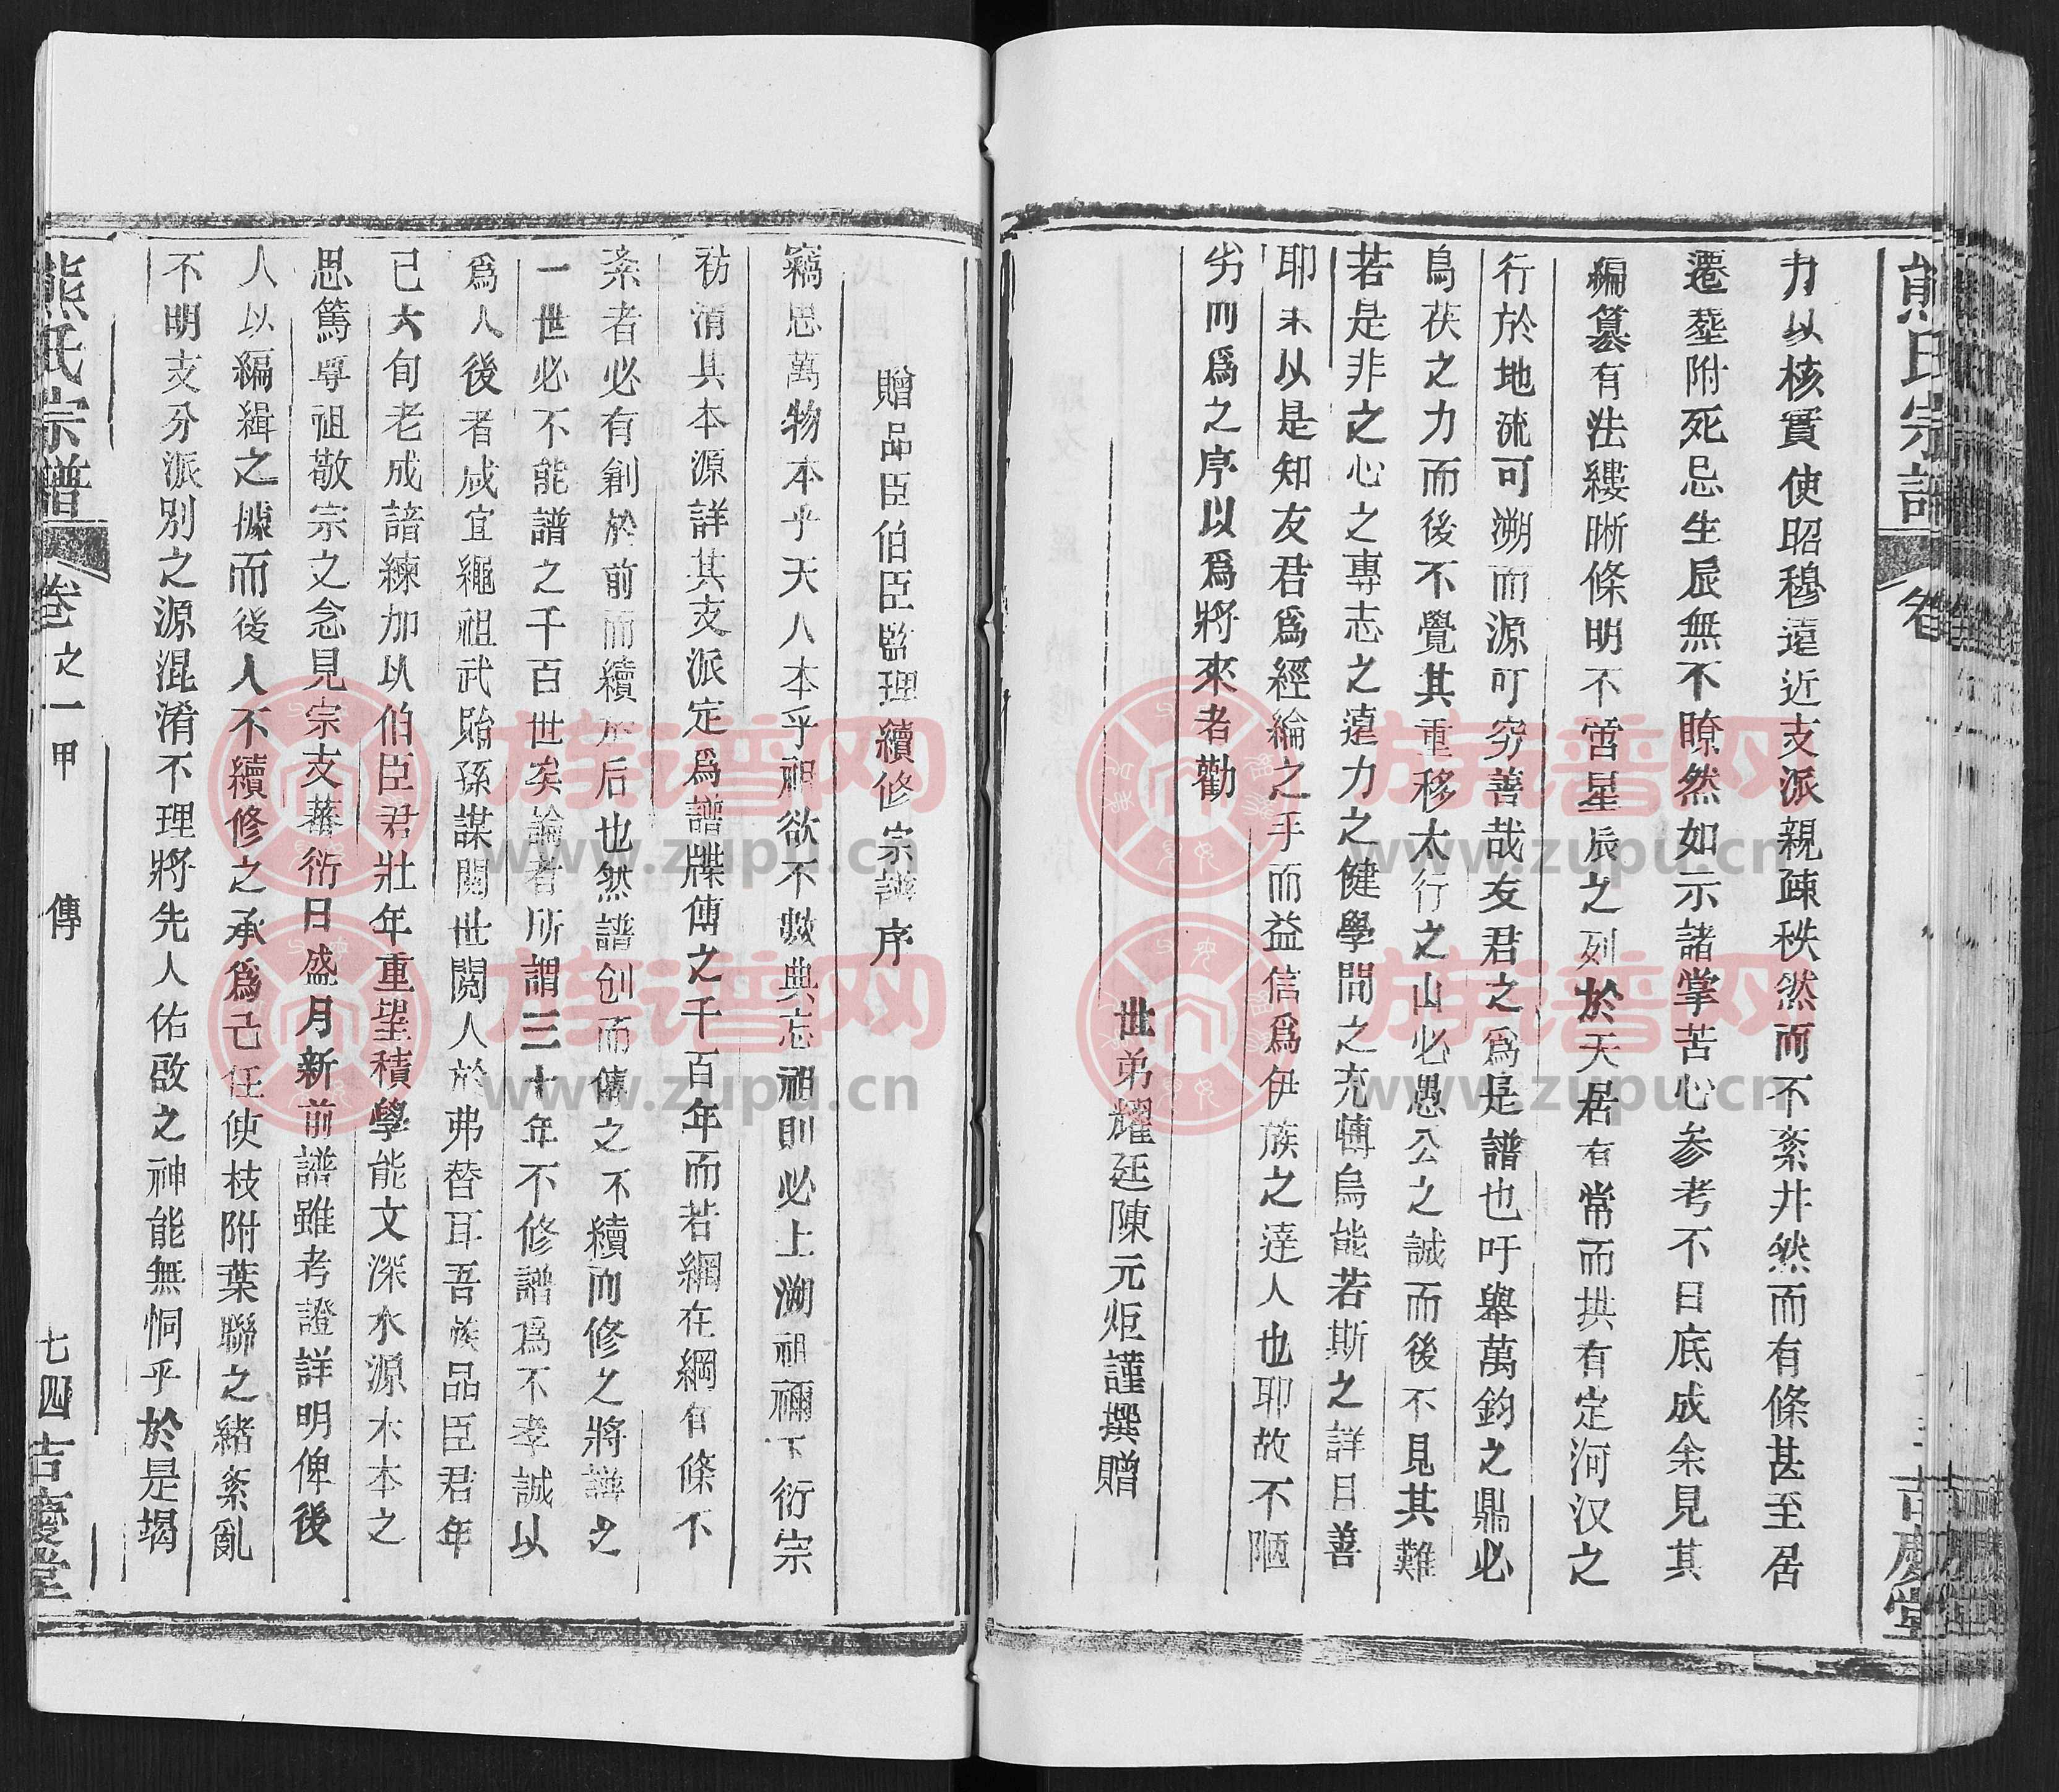 熊氏宗譜
卷
吉慶堂
力以核實使昭穆遠近支派親疎秩然而不紊井然而有條甚至居
遷塟附死忌生辰無不瞭然如示諸掌苦心参考不日底成余見其
編篡有法縷晰條明不啻星辰之列於天居有常而拱有定河汉之
行於地流可溯而源可穷善哉友君之爲是譜也吁舉萬鈞之鼎必
烏获之力而後不覺其重移太行之山必愚公之誠而後不見其難
若是非之心之專志之遠力之健學問之充博烏能若斯之詳且善
耶未以是知友君爲經綸之手而益信爲伊族之達人也耶故不陋
劣而爲之序以爲將來者勸
世弟耀廷陳元炬謹撰贈
贈品臣伯臣監理續修宗譜序
竊思萬物本乎天人本乎祖欲不數典忘祖則必上溯祖禰下衍宗
祊清其本源詳其支派定爲譜牒傳之千百年而若網在綱有條不
紊者必有創於前而續於后也然譜创而傳之不續而修之將譜之
一世必不能譜之千百世矣論者所謂三十年不修譜爲不孝誠以
爲人後者咸宜繩祖武貽孫謀閱世閱人於弗替耳吾族品臣君年
已六旬老成諳練加以伯臣君壯年重望積學能文深水源木本之
思篤尊祖敬宗之念見宗支蕃衍日盛月新前譜雖考證詳明俾後
人以編緝之據而後人不續修之承爲己任使枝附葉聯之緒紊亂
不明支分派別之源混淆不理將先人佑啟之神能無恫乎於是竭
熊氏宗譜
卷之一甲
傳
七四
吉慶堂
族谱网
www.zupu.cn
族谱网
www.zupu.cn
族谱网
www.zupu.cn
族谱网
www.zupu.cn